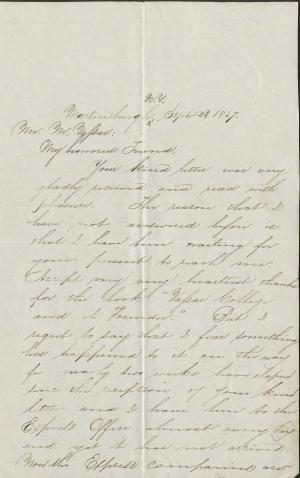 N.Y.
Martinsburgh, Sept. 23, 1867.
Mr. M. Vassar:
My honored Friend,
Your kind letter was very
gladly received and read with
pleasure. The reason that I
have not answered before is
that I have been waiting for
your present to reach me.
Accept my very heartiest thanks
for the book "Vassar College
and its Founder." But I
regret to say that I fear something
has happened to it on the way
for nearly two weeks have elapsed
since the reception of your kind
letter and I have been to the
Express Office almost every day
and yet it has not arrived.
Now the Express companies are